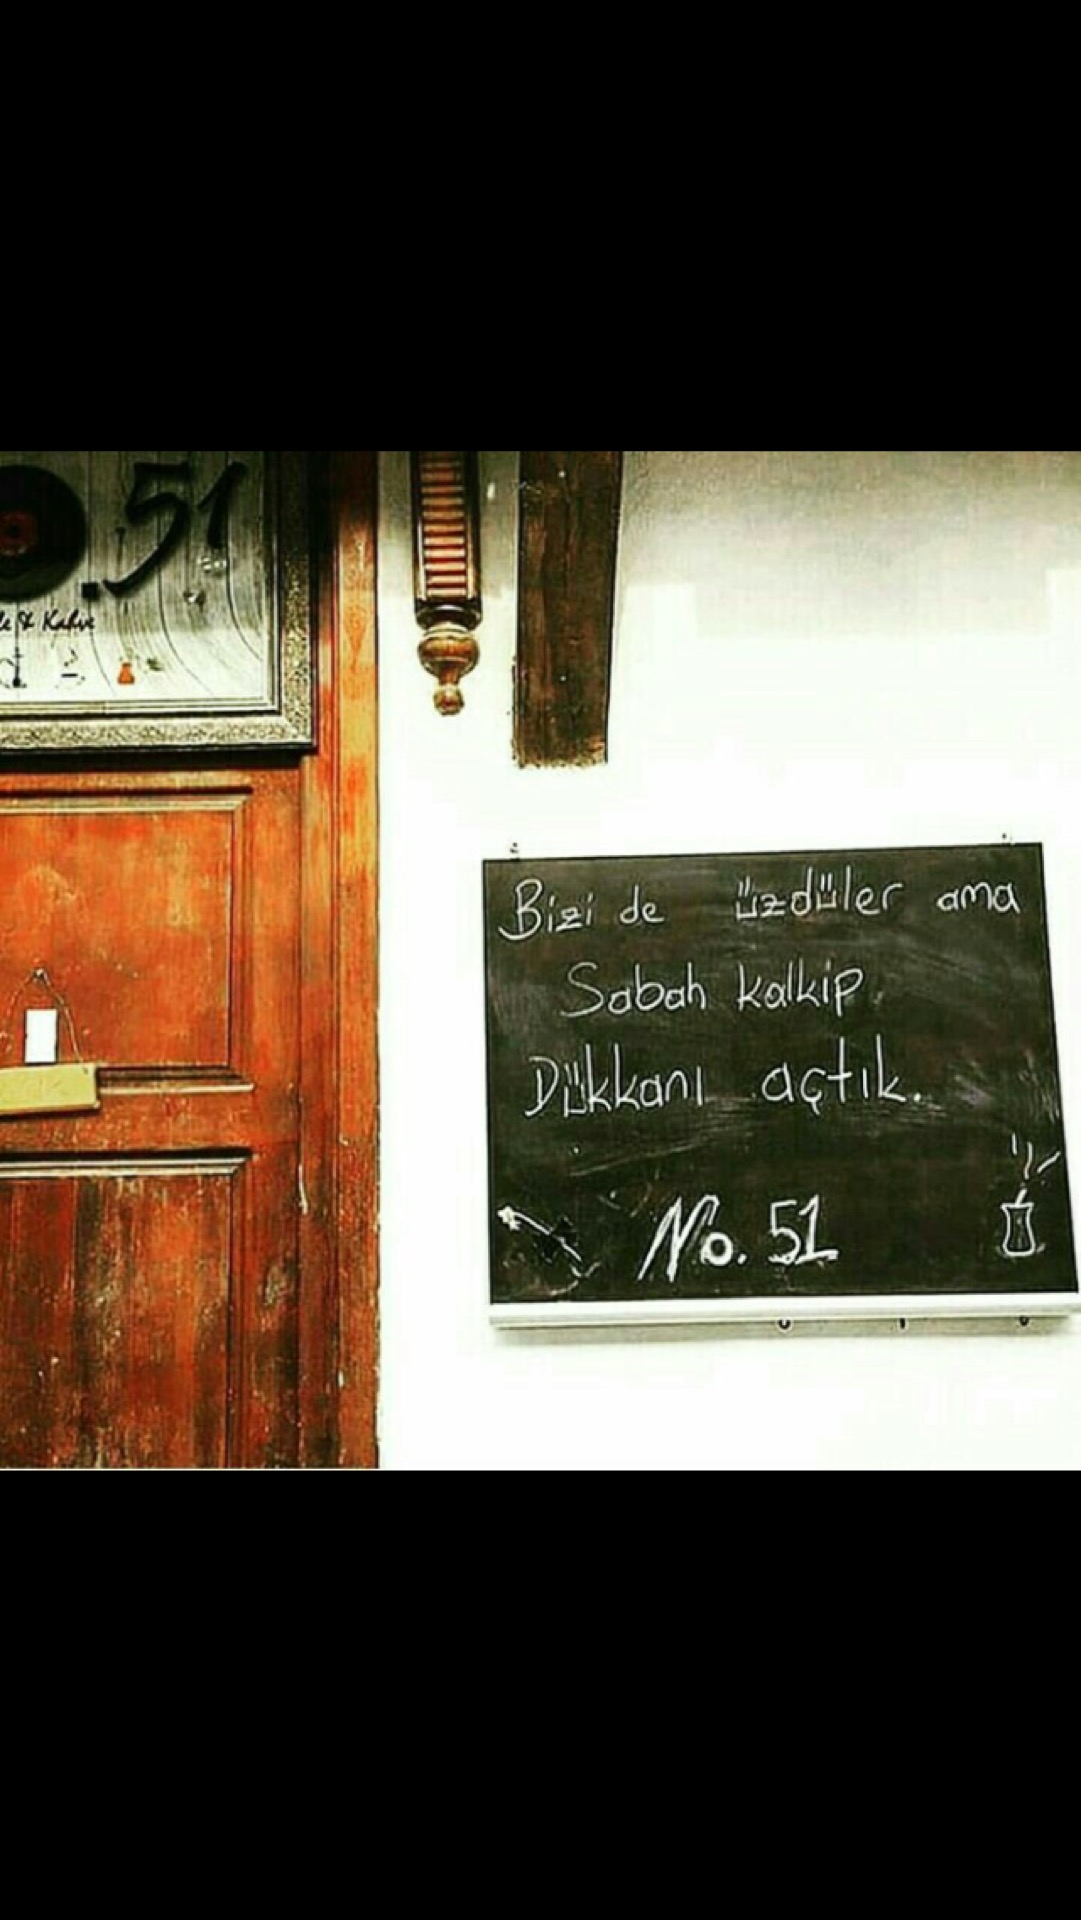 .51
& Kahve
Bizi de üzdüler ama
Sabah kalkip
Dükkanı açtık.
No. 51